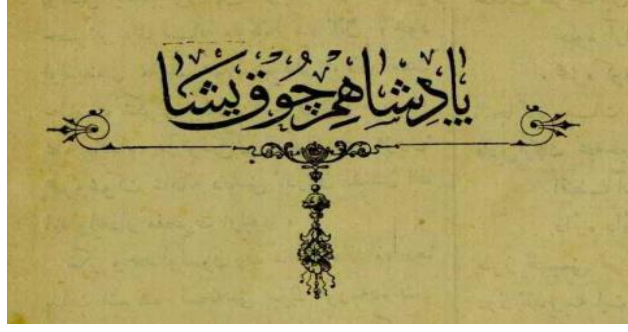 پادِشاهِم چُوق یشا